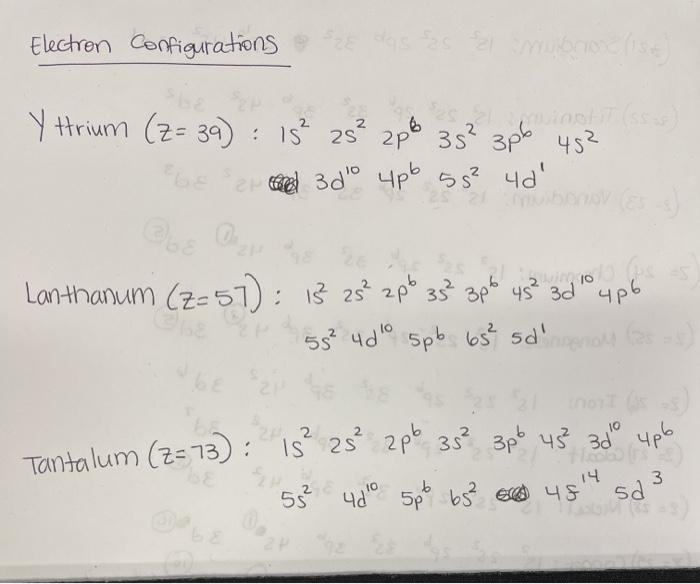 Electron Configurations
Yttrium (Z=39) : 1s² 2s² 2p⁶ 3s² 3p⁶ 4s²
3d¹⁰ 4p⁶ 5s² 4d¹
Lanthanum (Z=57) : 1s² 2s² 2p⁶ 3s² 3p⁶ 4s² 3d¹⁰ 4p⁶
5s² 4d¹⁰ 5p⁶ 6s² 5d¹
Tantalum (Z=73) : 1s² 2s² 2p⁶ 3s² 3p⁶ 4s² 3d¹⁰ 4p⁶
5s² 4d¹⁰ 5p⁶ 6s² 4f¹⁴ 5d³